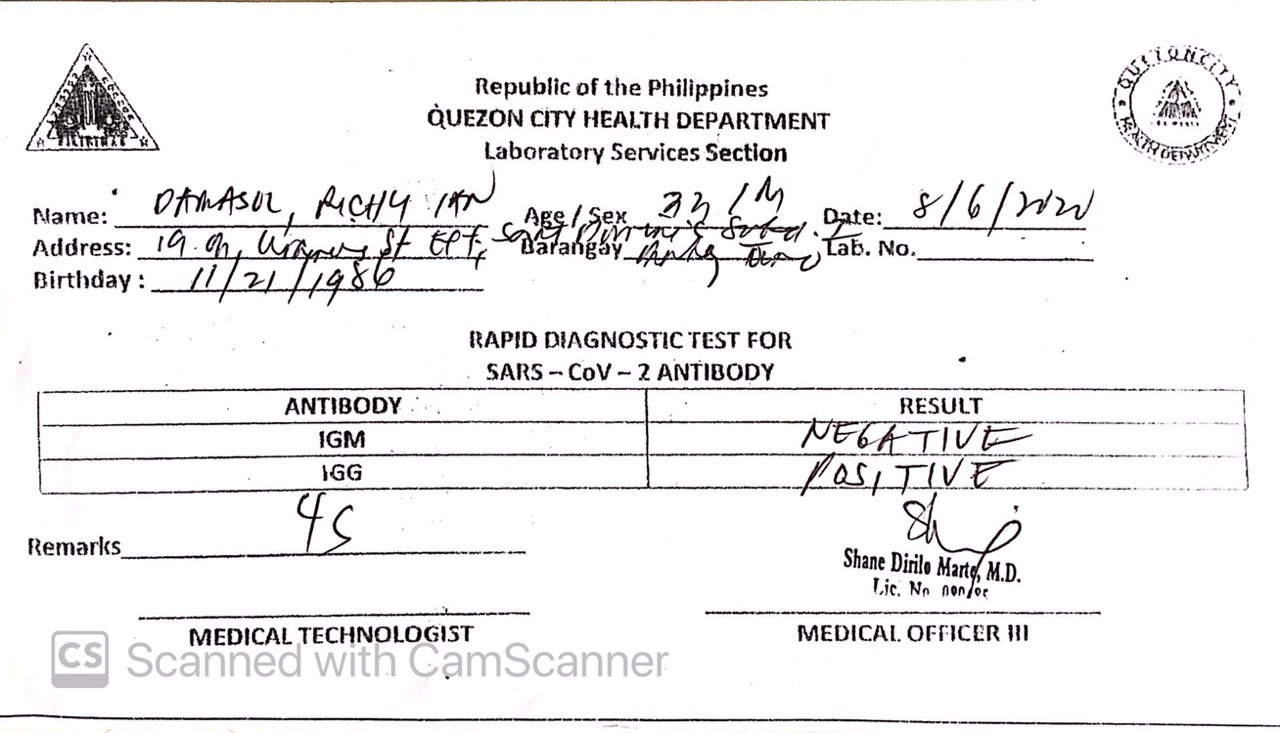 Republic of the Philippines
QUEZON CITY HEALTH DEPARTMENT
Laboratory Services Section
PILIPINAS
QUEZON CITY
HEALTH DEPARTMENT
Name: DAMASOL, RICHY IAN Age / Sex 33 / M Date: 8/6/2020
Address: 19 St Barangay Lab. No.
Birthday : 11/21/1986
RAPID DIAGNOSTIC TEST FOR
SARS – CoV – 2 ANTIBODY
ANTIBODY RESULT
IGM NEGATIVE
IGG POSITIVE
Remarks
Shane Dirilo Marte, M.D.
Lic. No
MEDICAL TECHNOLOGIST MEDICAL OFFICER III
CS Scanned with CamScanner